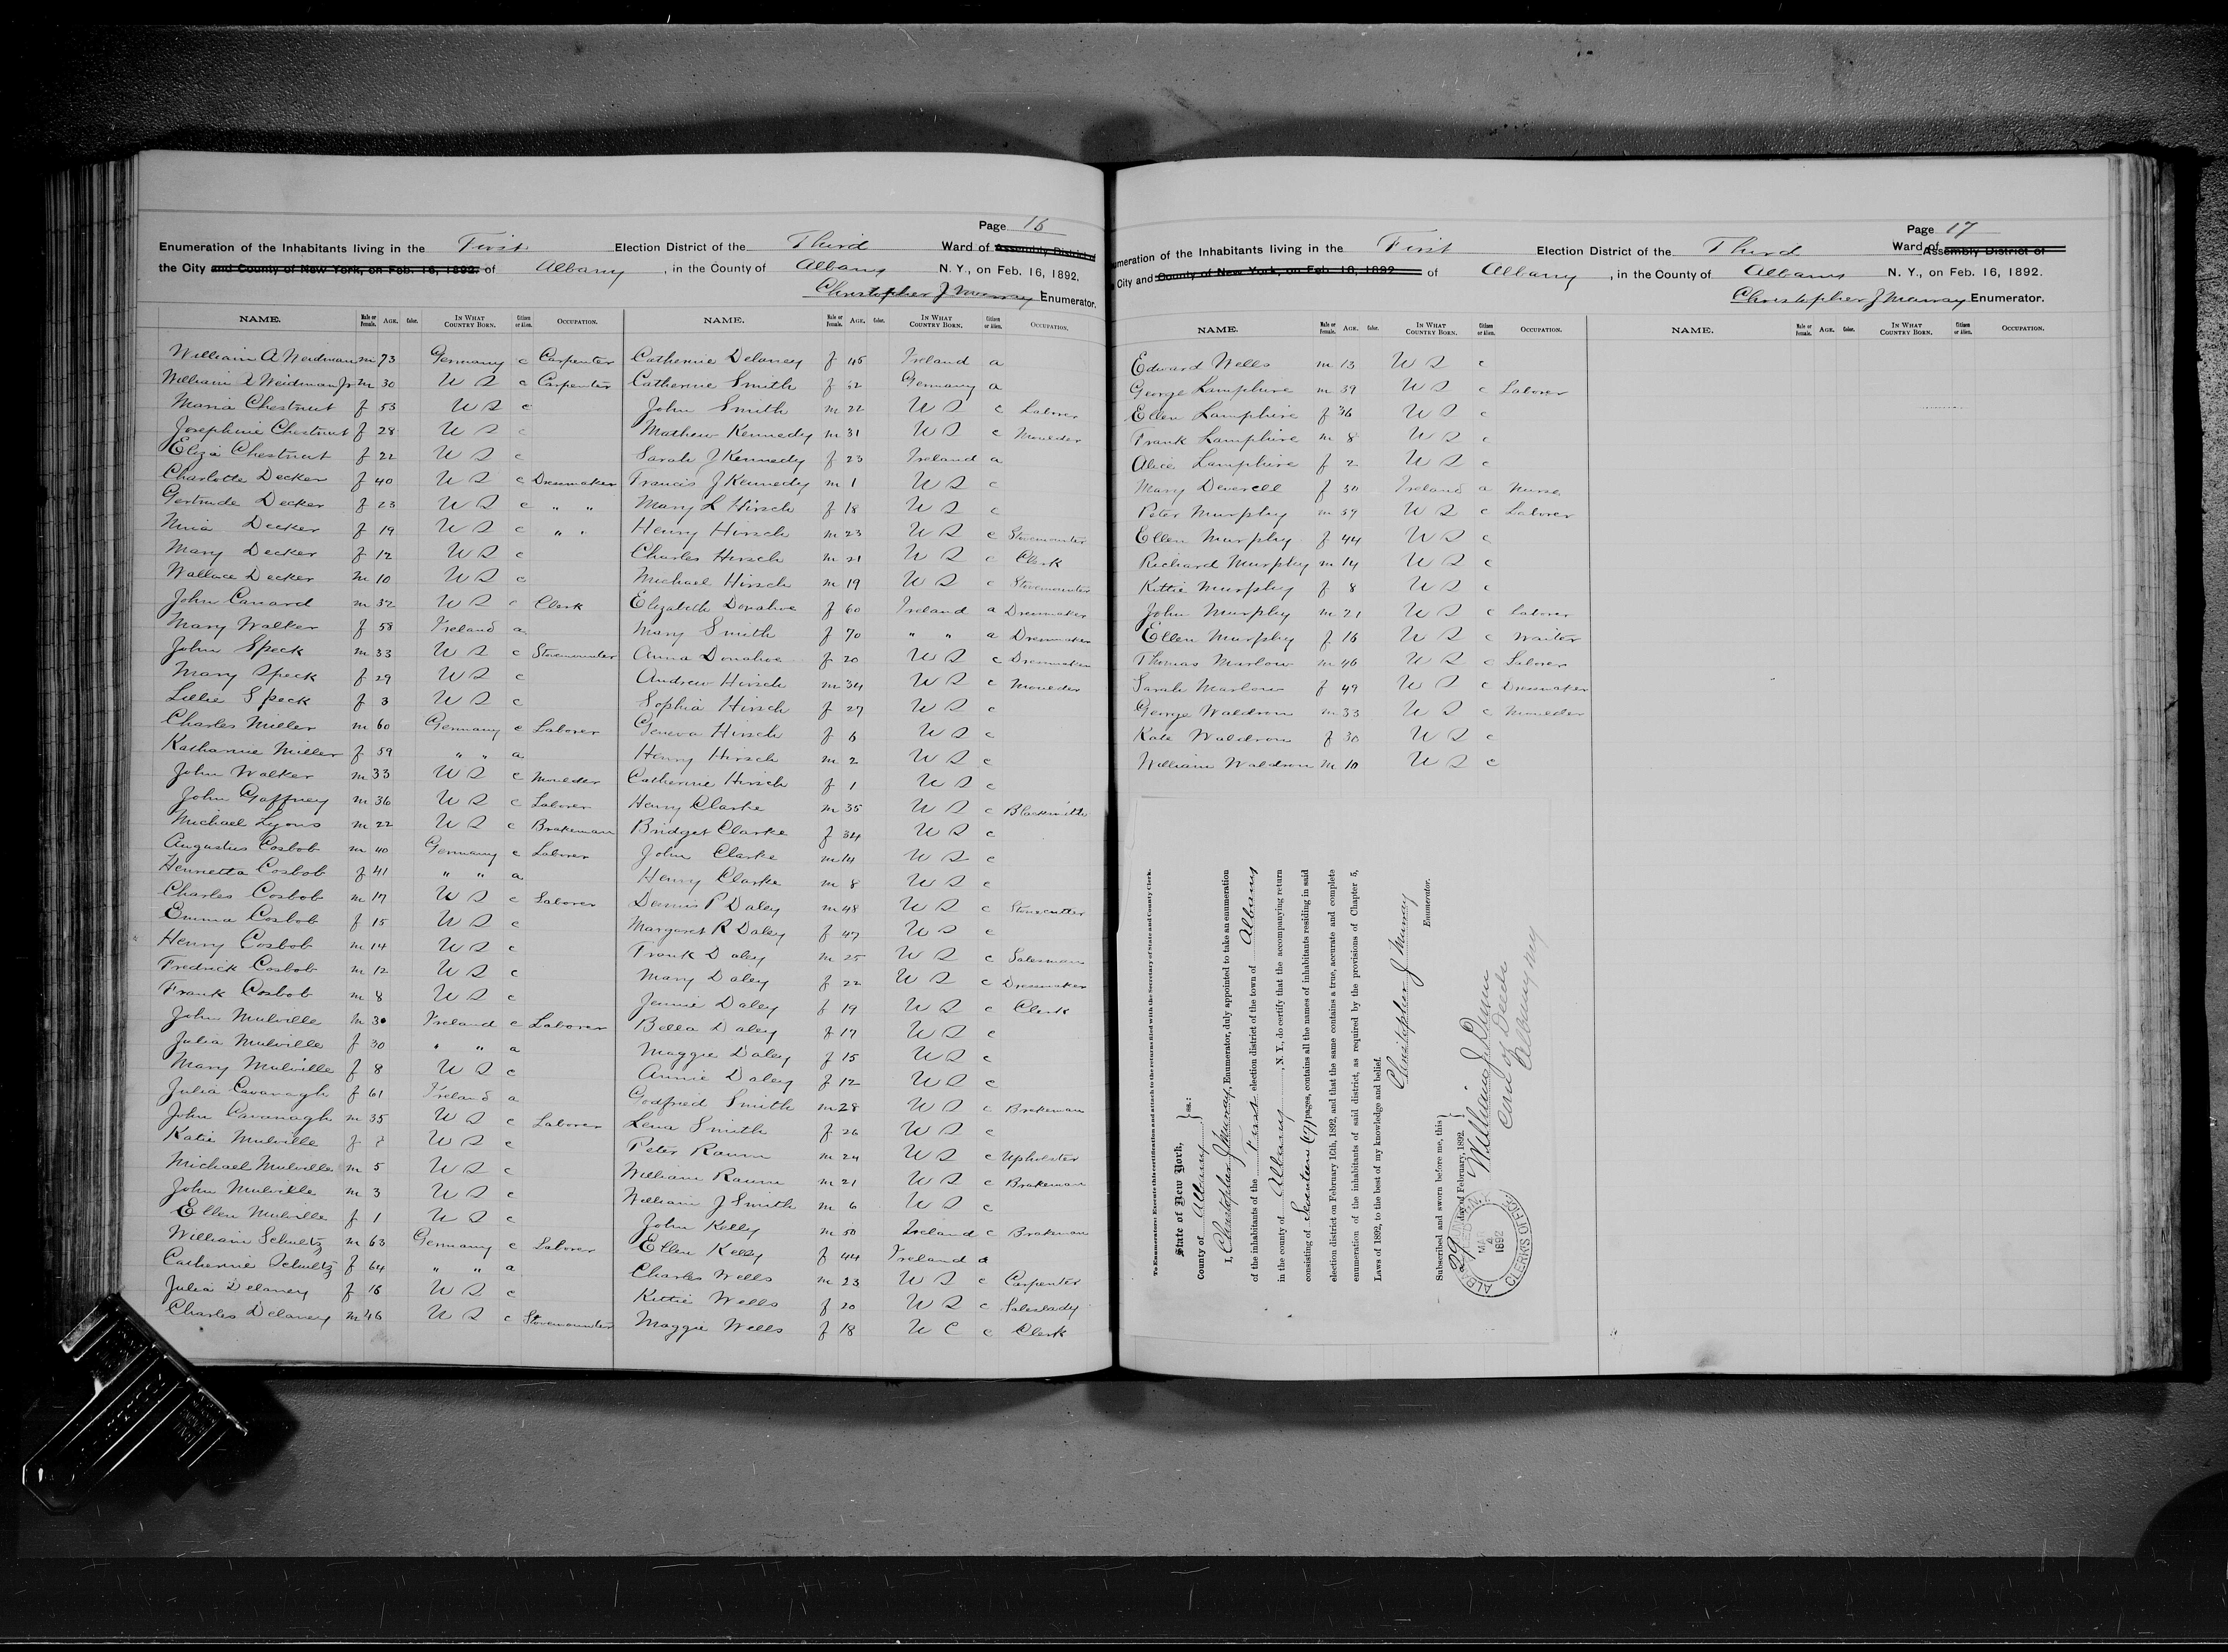 Page 16
Enumeration of the Inhabitants living in the First Election District of the Third Ward of Assembly District of
the City and County of New York, on Feb. 16, 1892. of Albany, in the County of Albany N. Y., on Feb. 16, 1892.
Christopher J Murray Enumerator.
NAME. Male or Female. AGE. Color. IN WHAT COUNTRY BORN. Citizen or Alien. OCCUPATION.
William A Weidman m 73 Germany c Carpenter
William A Weidman Jr m 30 U S c Carpenter
Maria Chestnut f 53 U S c
Josephine Chestnut f 28 U S c
Eliza Chestnut f 22 U S c
Charlotte Decker f 40 U S c Dressmaker
Gertrude Decker f 23 U S c " "
Nina Decker f 19 U S c " "
Mary Decker f 12 U S c
Wallace Decker m 10 U S c
John Canard m 32 U S c Clerk
Mary Walker f 58 Ireland a
John Speck m 33 U S c Stovemounter
Mary Speck f 29 U S c
Lillie Speck f 3 U S c
Charles Miller m 60 Germany c Laborer
Katharine Miller f 59 " " a
John Walker m 33 U S c Moulder
John Gaffney m 36 U S c Laborer
Michael Lyons m 22 U S c Brakeman
Augustus Cosbob m 40 Germany c Laborer
Henrietta Cosbob f 41 " " a
Charles Cosbob m 17 U S c Laborer
Emma Cosbob f 15 U S c
Henry Cosbob m 14 U S c
Fredrick Cosbob m 12 U S c
Frank Cosbob m 8 U S c
John Mulville m 30 Ireland c Laborer
Julia Mulville f 30 " " a
Mary Mulville f 8 U S c
Julia Cavanagh f 61 Ireland a
John Cavanagh m 35 U S c Laborer
Katie Mulville f U S c
Michael Mulville m 5 U S c
John Mulville m 3 U S c
Ellen Mulville f 1 U S c
William Schultz m 63 Germany c Laborer
Catherine Schultz f 64 " " a
Julia Delaney f 16 U S c
Charles Delaney m 46 U S c Stovemounter
NAME. Male or Female. AGE. Color. IN WHAT COUNTRY BORN. Citizen or Alien. OCCUPATION.
Catherine Delaney f 45 Ireland a
Catherine Smith f 52 Germany a
John Smith m 22 U S c Laborer
Mathew Kennedy m 31 U S c Moulder
Sarah J Kennedy f 23 Ireland a
Francis J Kennedy m 1 U S c
Mary L Hirsch f 18 U S c
Henry Hirsch m 23 U S c Stovemounter
Charles Hirsch m 21 U S c Clerk
Michael Hirsch m 19 U S c Stovemounter
Elizabeth Donahoe f 60 Ireland a Dressmaker
Mary Smith f 70 " " a Dressmaker
Anna Donahoe f 20 U S c Dressmaker
Andrew Hirsch m 34 U S c Moulder
Sophia Hirsch f 27 U S c
Geneva Hirsch f 6 U S c
Henry Hirsch m 2 U S c
Catherine Hirsch f 1 U S c
Henry Clarke m 35 U S c Blacksmith
Bridget Clarke f 34 U S c
John Clarke m 14 U S c
Henry Clarke m 8 U S c
Dennis P Daley m 48 U S c Stonecutter
Margaret R Daley f 47 U S c
Frank Daley m 25 U S c Salesman
Mary Daley f 22 U S c Dressmaker
Jennie Daley f 19 U S c Clerk
Bella Daley f 17 U S c
Maggie Daley f 15 U S c
Annie Daley f 12 U S c
Godfred Smith m 28 U S c Brakeman
Lena Smith f 26 U S c
Peter Raum m 24 U S c Upholster
William Raum m 21 U S c Brakeman
William J Smith m 6 U S c
John Kelly m 50 Ireland c Brakeman
Ellen Kelly f 44 Ireland a
Charles Wells m 23 U S c Carpenter
Kittie Wells f 20 U S c Saleslady
Maggie Wells f 18 U C c Clerk
Page 17
umeration of the Inhabitants living in the First Election District of the Third Ward of Assembly District of
City and County of New York, on Feb. 16, 1892 of Albany, in the County of Albany N. Y., on Feb. 16, 1892.
Christopher J Murray Enumerator.
NAME. Male or Female. AGE. Color. IN WHAT COUNTRY BORN. Citizen or Alien. OCCUPATION.
Edward Wells m 13 U S c
George Lamphire m 39 U S c Laborer
Ellen Lamphire f 36 U S c
Frank Lamphire m 8 U S c
Alice Lamphire f 2 U S c
Mary Deverell f 50 Ireland a Nurse
Peter Murphy m 59 U S c Laborer
Ellen Murphy f 44 U S c
Richard Murphy m 14 U S c
Kittie Murphy f 8 U S c
John Murphy m 21 U S c Laborer
Ellen Murphy f 16 U S c Waiter
Thomas Marlow m 46 U S c Laborer
Sarah Marlow f 49 U S c Dressmaker
George Waldron m 33 U S c Moulder
Kate Waldron f 30 U S c
William Waldron m 10 U S c
NAME. Male or Female. AGE. Color. IN WHAT COUNTRY BORN. Citizen or Alien. OCCUPATION.
To Enumerators: Execute this certification and attach to the returns filed with the Secretary of State and County Clerk.
State of New York,
County of Albany } ss.:
I, Christopher J Murray, Enumerator, duly appointed to take an enumeration
of the inhabitants of the First election district of the town of Albany
in the county of Albany, N. Y., do certify that the accompanying return
consisting of Seventeen (17) pages, contains all the names of inhabitants residing in said
election district on February 16th, 1892, and that the same contains a true, accurate and complete
enumeration of the inhabitants of said district, as required by the provisions of Chapter 5,
Laws of 1892, to the best of my knowledge and belief.
Christopher J Murray
Enumerator.
Subscribed and sworn before me, this
29 day of February, 1892. }
William J
Com of Deeds
Albany N Y
ALBANY
MAR
2
1892
CLERK'S OFFICE